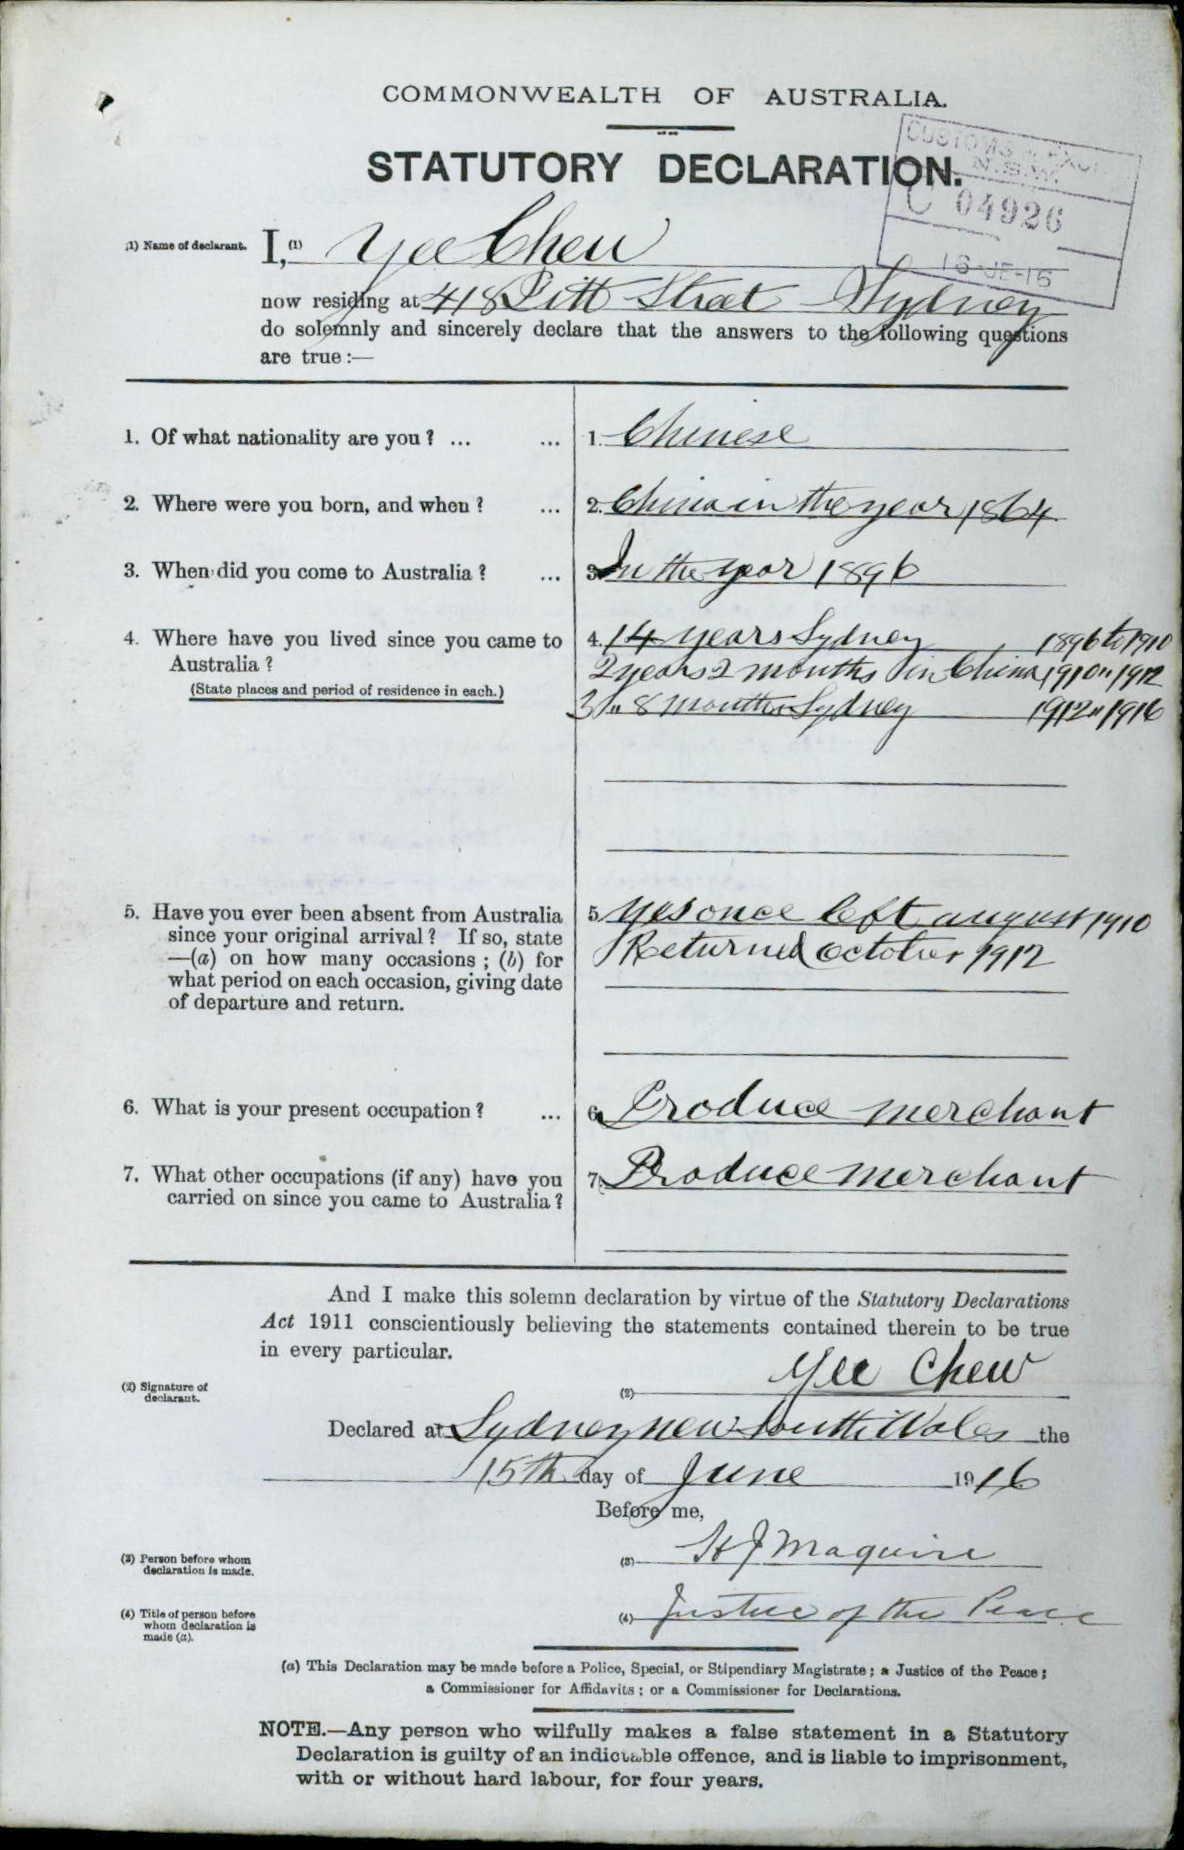 COMMONWEALTH OF AUSTRALIA.
STATUTORY DECLARATION.
CUSTOMS & EXCI
N.S.W.
C 04926
16-JE-16
(1) Name of declarant. I, (1) Yee Chew
now residing at 418 Pitt Street Sydney
do solemnly and sincerely declare that the answers to the following questions
are true:—
1. Of what nationality are you? ... ... 1. Chinese
2. Where were you born, and when? ... 2. China in the year 1864
3. When did you come to Australia? ... 3. In the year 1896
4. Where have you lived since you came to 4. 14 years Sydney 1896 to 1910
Australia? 2 years 2 months in China 1910 " 1912
(State places and period of residence in each.) 3 " 8 months Sydney 1912 " 1916
5. Have you ever been absent from Australia 5. Yes once left august 1910
since your original arrival? If so, state Returned October 1912
—(a) on how many occasions; (b) for
what period on each occasion, giving date
of departure and return.
6. What is your present occupation? ... 6. Produce merchant
7. What other occupations (if any) have you 7. Produce merchant
carried on since you came to Australia?
And I make this solemn declaration by virtue of the Statutory Declarations
Act 1911 conscientiously believing the statements contained therein to be true
in every particular.
(2) Signature of (2) Yee Chew
declarant.
Declared at Sydney new South Wales the
15th day of June 1916
Before me,
(3) Person before whom (3) H J Maguire
declaration is made.
(4) Title of person before (4) Justice of the Peace
whom declaration is
made (a).
(a) This Declaration may be made before a Police, Special, or Stipendiary Magistrate; a Justice of the Peace;
a Commissioner for Affidavits; or a Commissioner for Declarations.
NOTE.—Any person who wilfully makes a false statement in a Statutory
Declaration is guilty of an indictable offence, and is liable to imprisonment,
with or without hard labour, for four years.